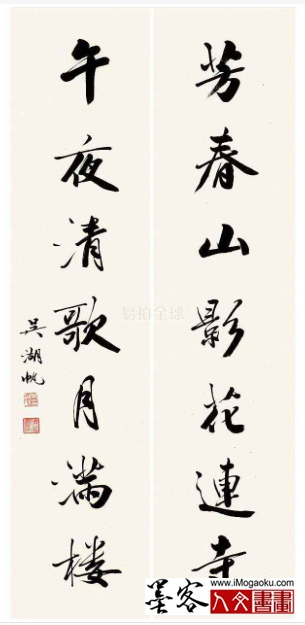 芳春山影花連寺
午夜清歌月满楼
吴湖帆
易拍全球
墨客
www.iMogaoku.com
人文書畫